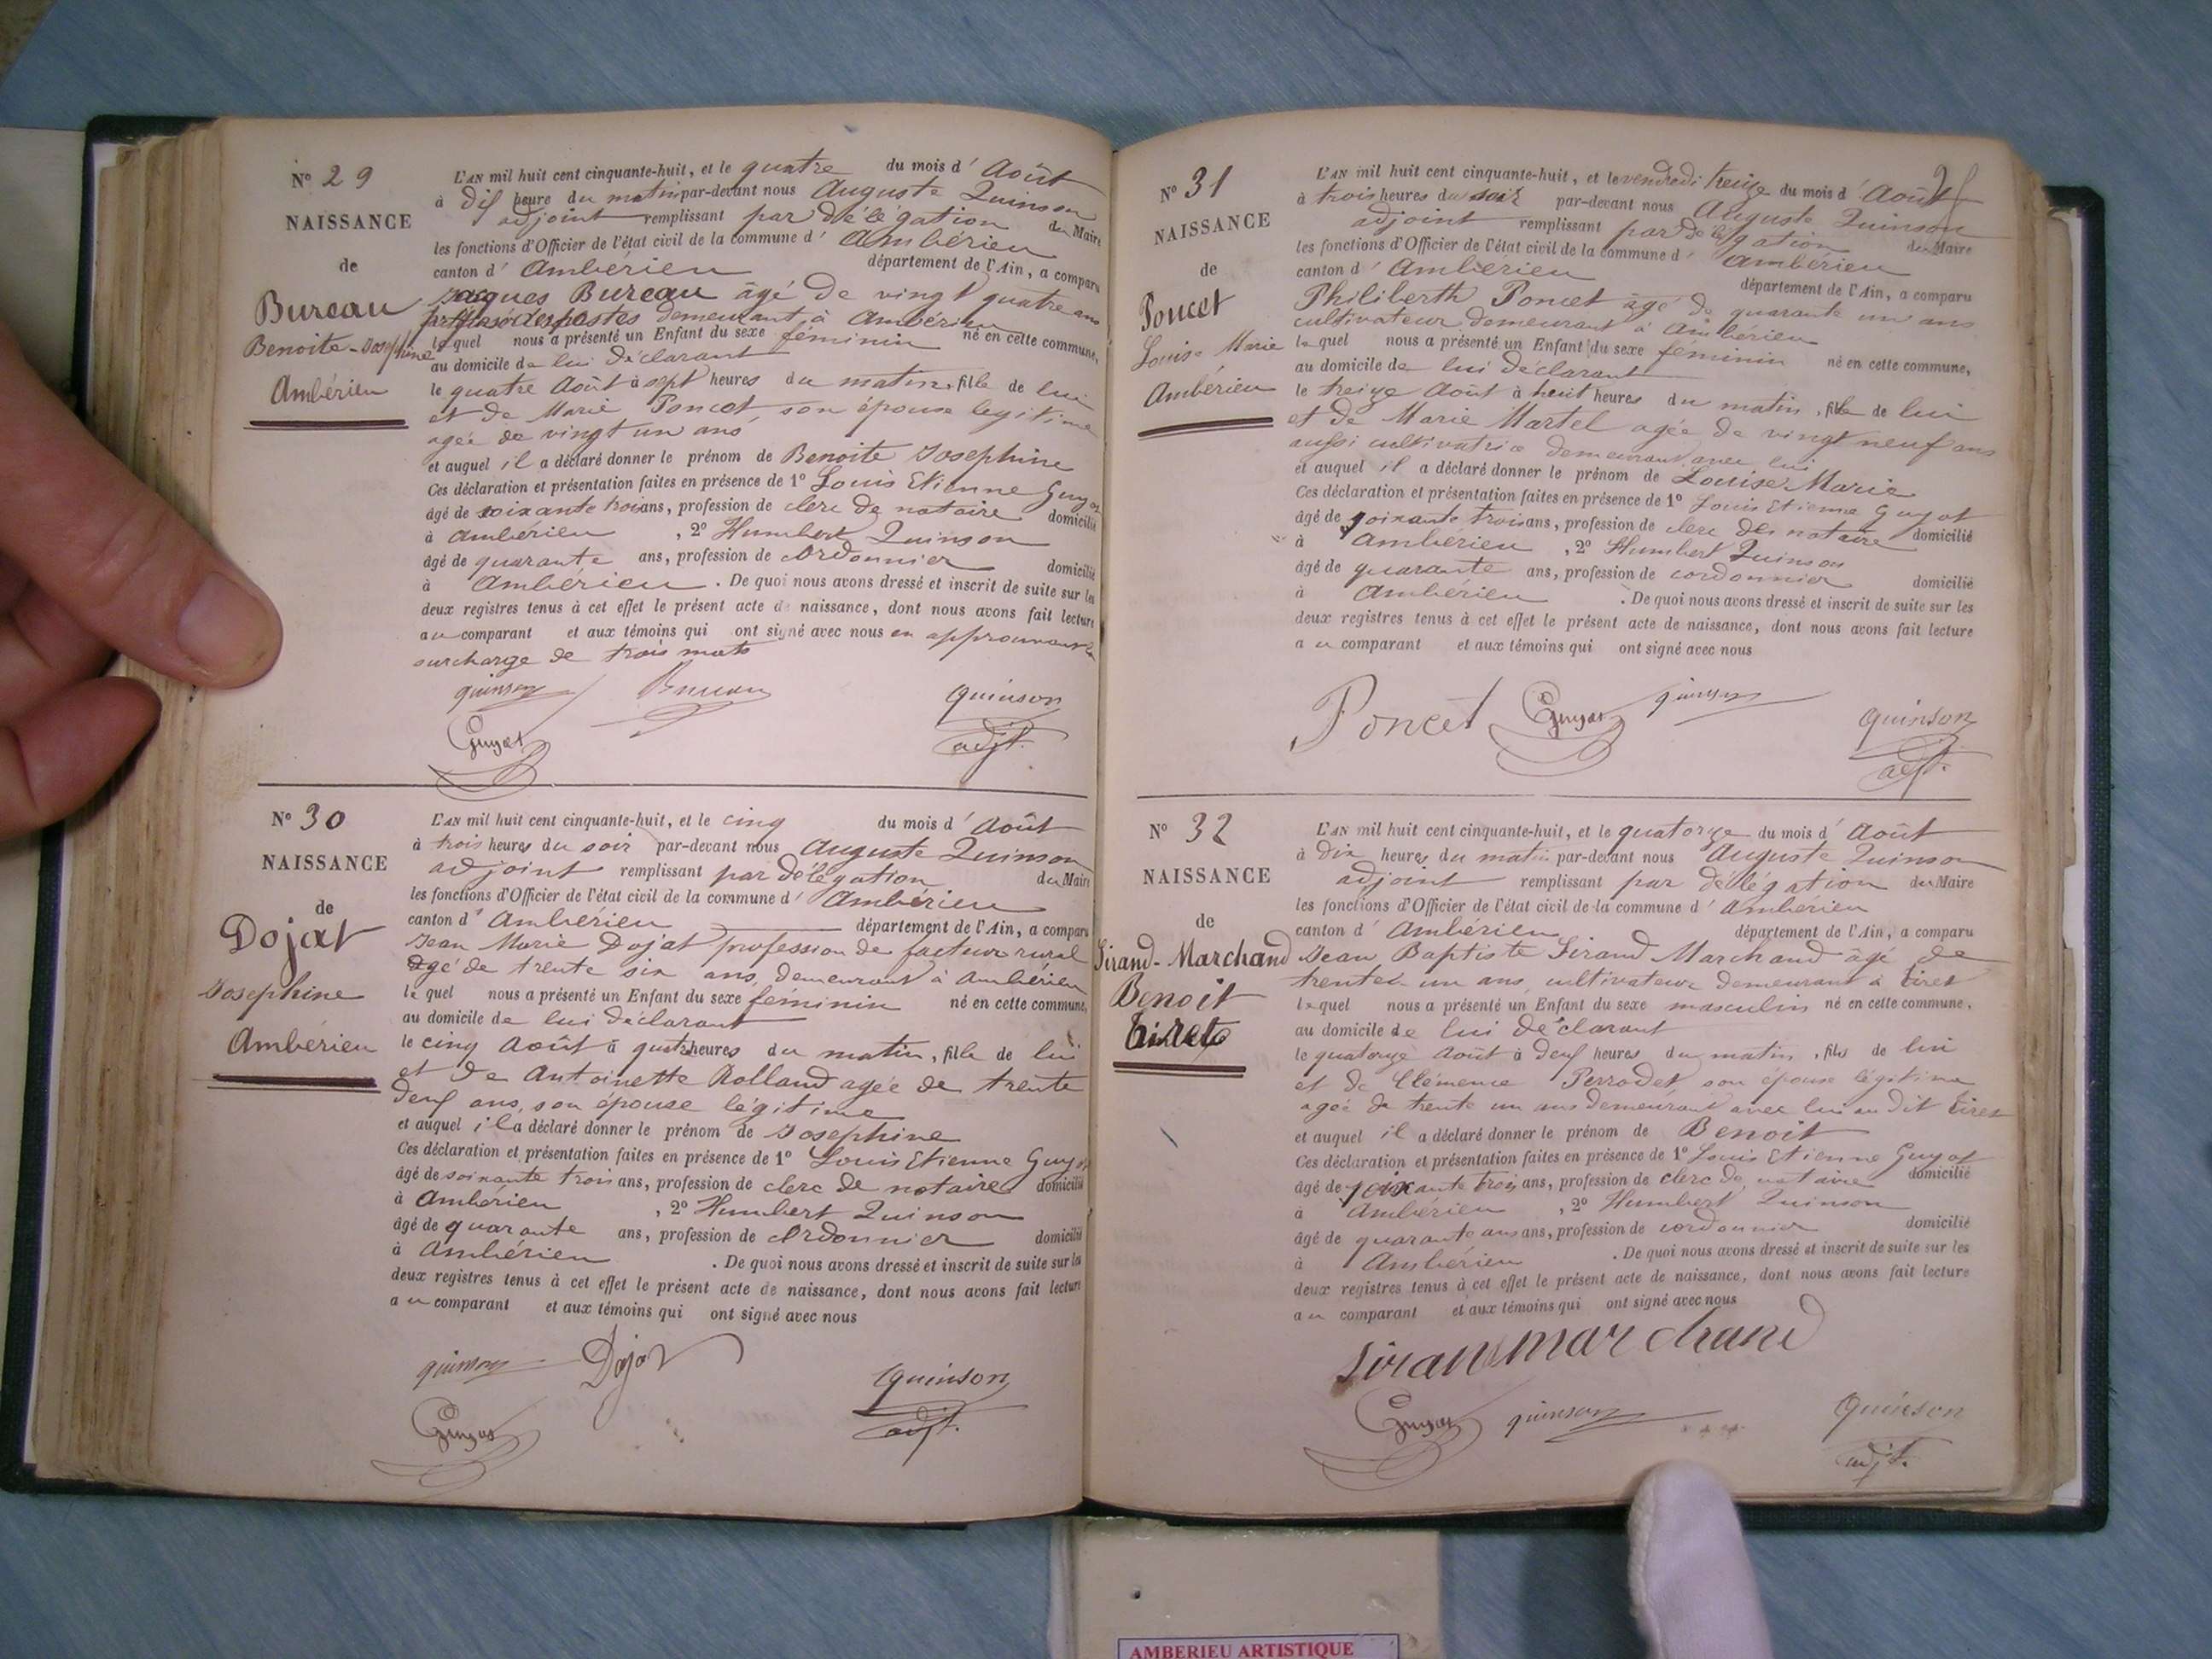 N° 29
NAISSANCE
de
Bureau
Benoite-Josephine
Ambérieu
L'AN mil huit cent cinquante-huit, et le quatre du mois d'Août
à dix heure du matin par-devant nous Auguste Quinson
adjoint remplissant par délégation du Maire
les fonctions d'Officier de l'état civil de la commune d'Ambérieu
canton d'Ambérieu département de l'Ain, a comparu
Jacques Bureau âgé de vingt quatre ans
des postes demeurant à Ambérieu
lequel nous a présenté un Enfant du sexe féminin né en cette commune,
au domicile de lui déclarant
le quatre Août à sept heures du matin, fille de lui
et de Marie Poncet, son épouse legitime
agée de vingt un ans
et auquel il a déclaré donner le prénom de Benoite Josephine
Ces déclaration et présentation faites en présence de 1° Louis Etienne Guyot
âgé de soixante trois ans, profession de clerc de notaire domicilié
à Ambérieu, 2° Humbert Quinson
âgé de quarante ans, profession de cordonnier domicilié
à Ambérieu. De quoi nous avons dressé et inscrit de suite sur les
deux registres tenus à cet effet le présent acte de naissance, dont nous avons fait lecture
au comparant et aux témoins qui ont signé avec nous en approuvant la
surcharge de trois mots
quinson Bureau quinson
Guyot adjt.
N° 30
NAISSANCE
de
Dojat
Josephine
Ambérieu
L'AN mil huit cent cinquante-huit, et le cinq du mois d'Août
à trois heures du soir par-devant nous Auguste Quinson
adjoint remplissant par délégation du Maire
les fonctions d'Officier de l'état civil de la commune d'Ambérieu
canton d'Ambérieu département de l'Ain, a comparu
Jean Marie Dojat profession de facteur rural
âgé de trente six ans, demeurant à Ambérieu
lequel nous a présenté un Enfant du sexe féminin né en cette commune,
au domicile de lui déclarant
le cinq Août à quatre heures du matin, fille de lui
et de Antoinette Rolland agée de trente
deux ans, son épouse légitime
et auquel il a déclaré donner le prénom de Josephine
Ces déclaration et présentation faites en présence de 1° Louis Etienne Guyot
âgé de soixante trois ans, profession de clerc de notaire domicilié
à Ambérieu, 2° Humbert Quinson
âgé de quarante ans, profession de cordonnier domicilié
à Ambérieu. De quoi nous avons dressé et inscrit de suite sur les
deux registres tenus à cet effet le présent acte de naissance, dont nous avons fait lecture
au comparant et aux témoins qui ont signé avec nous
quinson Dojat quinson
Guyot adjt.
N° 31
NAISSANCE
de
Poncet
Louise Marie
Ambérieu
L'AN mil huit cent cinquante-huit, et le vendredi treize du mois d'Août
à trois heures du soir par-devant nous Auguste Quinson
adjoint remplissant par délégation du Maire
les fonctions d'Officier de l'état civil de la commune d'Ambérieu
canton d'Ambérieu département de l'Ain, a comparu
Philiberth Poncet âgé de quarante un ans
cultivateur demeurant à Ambérieu
lequel nous a présenté un Enfant du sexe féminin né en cette commune,
au domicile de lui déclarant
le treize Août à huit heures du matin, fille de lui
et de Marie Martel agée de vingt neuf ans
aussi cultivatrice demeurant avec lui
et auquel il a déclaré donner le prénom de Louise Marie
Ces déclaration et présentation faites en présence de 1° Louis Etienne Guyot
âgé de soixante trois ans, profession de clerc de notaire domicilié
à Ambérieu, 2° Humbert Quinson
âgé de quarante ans, profession de cordonnier domicilié
à Ambérieu. De quoi nous avons dressé et inscrit de suite sur les
deux registres tenus à cet effet le présent acte de naissance, dont nous avons fait lecture
au comparant et aux témoins qui ont signé avec nous
Poncet Guyot quinson quinson
adjt.
N° 32
NAISSANCE
de
Sirand-Marchand
Benoit
Tiret
L'AN mil huit cent cinquante-huit, et le quatorze du mois d'Août
à dix heures du matin par-devant nous Auguste Quinson
adjoint remplissant par délégation du Maire
les fonctions d'Officier de l'état civil de la commune d'Ambérieu
canton d'Ambérieu département de l'Ain, a comparu
Jean Baptiste Sirand Marchand âgé de
trente un ans, cultivateur demeurant à Tiret
lequel nous a présenté un Enfant du sexe masculin né en cette commune,
au domicile de lui déclarant
le quatorze Août à deux heures du matin, fils de lui
et de Clémence Perrodet, son épouse légitime
agée de trente un ans demeurant avec lui au dit Tiret
et auquel il a déclaré donner le prénom de Benoit
Ces déclaration et présentation faites en présence de 1° Louis Etienne Guyot
âgé de soixante trois ans, profession de clerc de notaire domicilié
à Ambérieu, 2° Humbert Quinson
âgé de quarante ans ans, profession de cordonnier domicilié
à Ambérieu. De quoi nous avons dressé et inscrit de suite sur les
deux registres tenus à cet effet le présent acte de naissance, dont nous avons fait lecture
au comparant et aux témoins qui ont signé avec nous
Siran marchand
Guyot quinson quinson
adjt.
AMBERIEU ARTISTIQUE